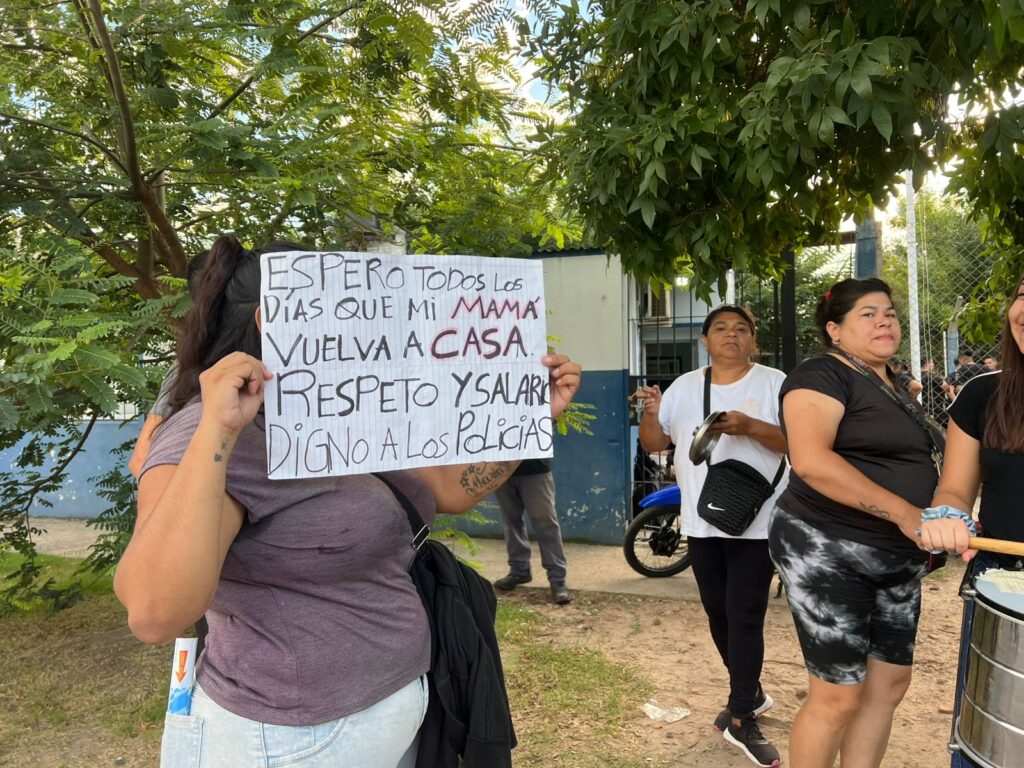 ESPERO TODOS LOS
DÍAS QUE MI MAMÁ
VUELVA A CASA.
RESPETO Y SALARIO
DIGNO A LOS POLICIAS